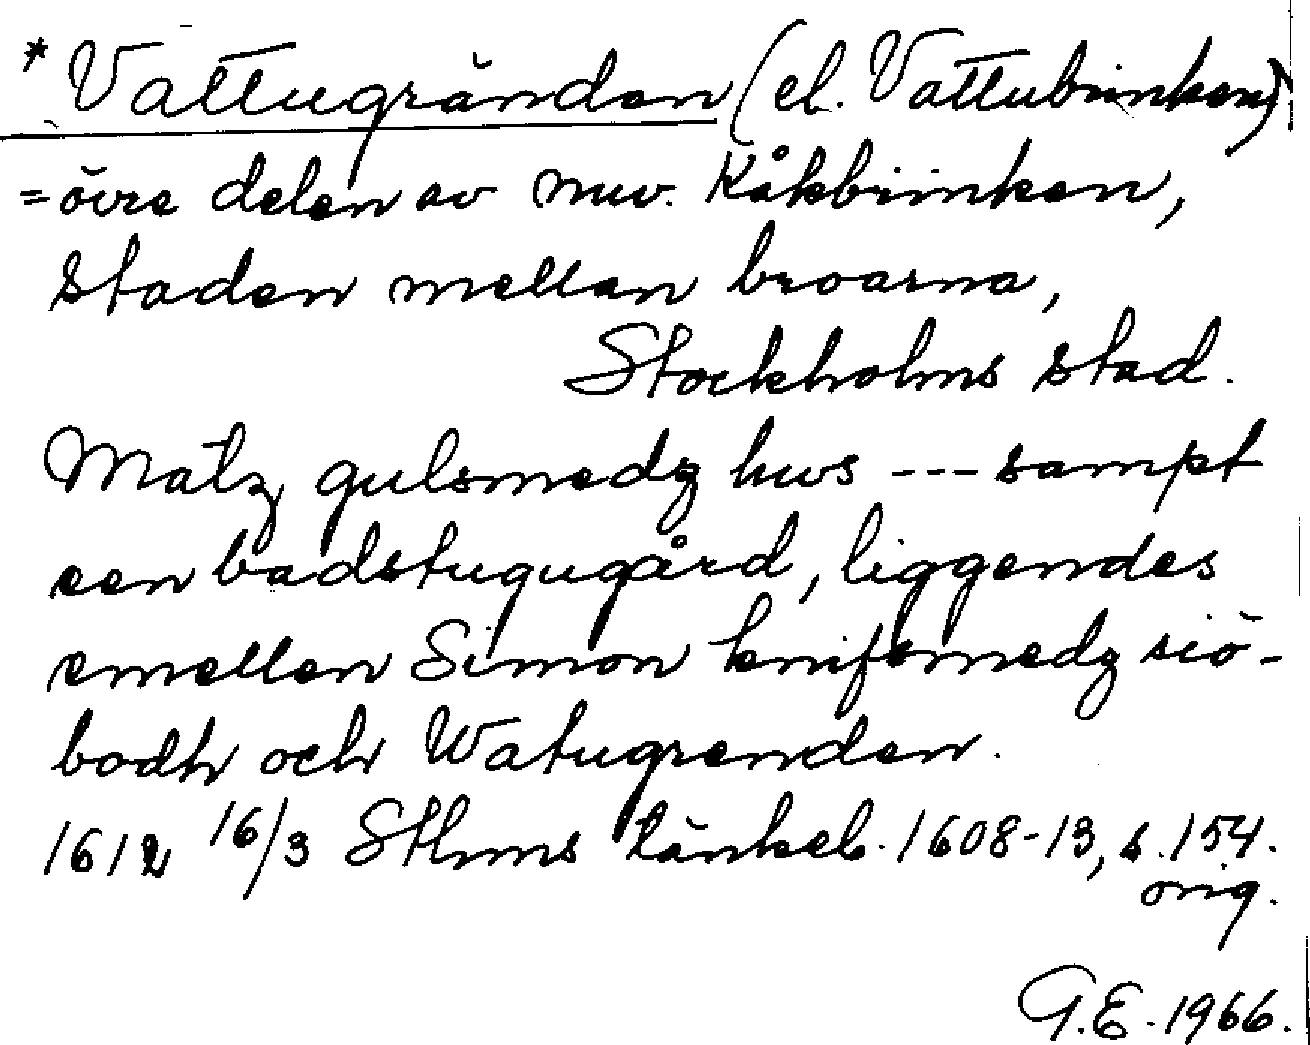 * Vattugränden (el. Vattubrinken)
= övre delen av nuv. Kåkbrinken,
staden mellan broarna,
Stockholms stad.
Matz gulsmedz hws --- sampt
een badstugugård, liggendes
emellen Simon knifsmedz siö-
bodh och Watugrenden.
1612 16/3 Sthms tänkeb. 1608-13, s. 154.
orig.
G.E. 1966.